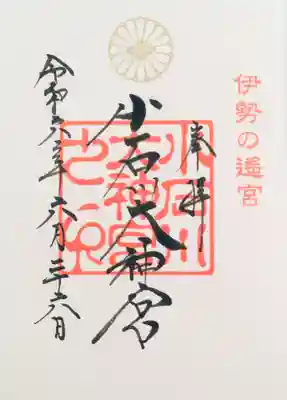 伊勢の遙宮
奉拝
小石川大神宮
小石川
大神宮
之印
令和六年六月二十六日